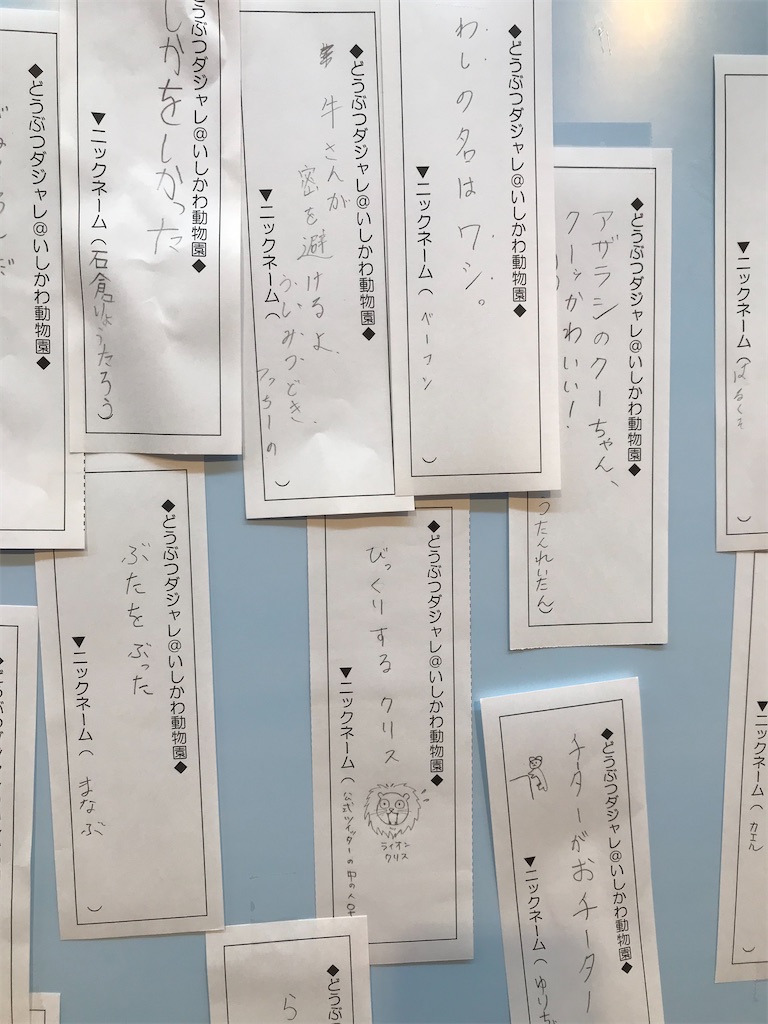 ◆どうぶつダジャレ@いしかわ動物園◆
わしの名はワシ。
▼ニックネーム(ベーコン)
◆どうぶつダジャレ@いしかわ動物園◆
牛さんが
密を避けるよ、
ういみつどき、
▼ニックネーム(
)
どうぶつダジャレ@いしかわ動物園◆
しかをしかった
▼ニックネーム(石倉りょうたろう)
◆どうぶつダジャレ@いしかわ動物園◆
◆どうぶつダジャレ@いしかわ動物園◆
アザラシのクーちゃん、
クーッかわいい!
つたんれいたん)
▼ニックネーム(
)
◆どうぶつダジャレ@いしかわ動物園◆
びっくりする クリス
ライオン
クリス
▼ニックネーム(公式ツイッターの中の人
◆どうぶつダジャレ@いしかわ動物園◆
ぶたをぶった
▼ニックネーム(まなぶ)
◆どうぶつダジャレ@いしかわ動物園◆
チーターがおチーター
▼ニックネーム(ゆり
▼ニックネーム(カエル)
◆どうぶ
ら